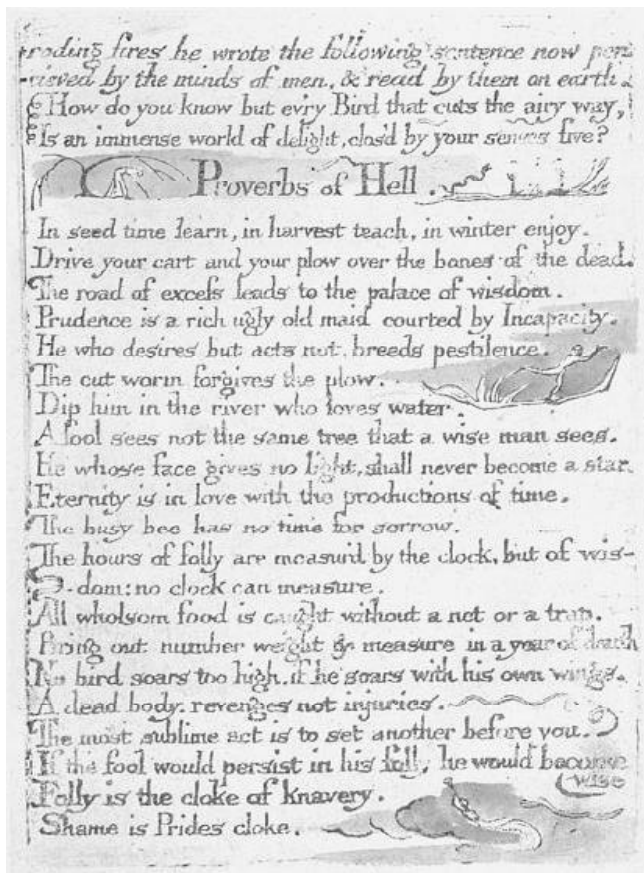 roding fires he wrote the following sentence now per
cieved by the minds of men, & read by them on earth.
How do you know but evry Bird that cuts the airy way,
Is an immense world of delight, clos'd by your senses five?
Proverbs of Hell.
In seed time learn, in harvest teach, in winter enjoy.
Drive your cart and your plow over the bones of the dead.
The road of excess leads to the palace of wisdom.
Prudence is a rich ugly old maid courted by Incapacity.
He who desires but acts not, breeds pestilence.
The cut worm forgives the plow.
Dip him in the river who loves water.
A fool sees not the same tree that a wise man sees.
He whose face gives no light, shall never become a star.
Eternity is in love with the productions of time.
The busy bee has no time for sorrow.
The hours of folly are measur'd by the clock, but of wis-
-dom: no clock can measure.
All wholsom food is caught without a net or a trap.
Bring out number weight & measure in a year of dearth
No bird soars too high, if he soars with his own wings.
A dead body, revenges not injuries.
The most sublime act is to set another before you.
If the fool would persist in his folly he would become
wise
Folly is the cloke of knavery.
Shame is Prides cloke.